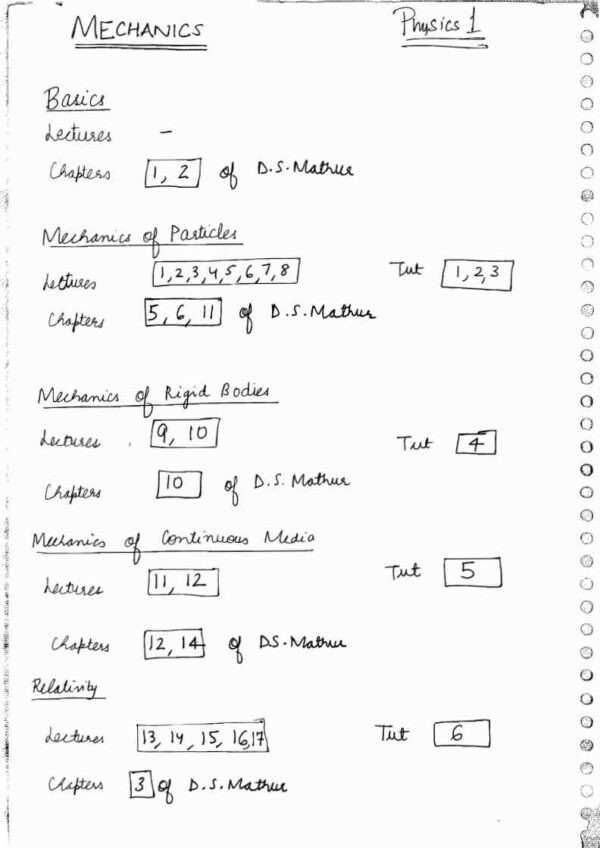 MECHANICS Physics 1
Basics
Lectures –
Chapters 1, 2 of D.S. Mathur
Mechanics of Particles
Lectures 1,2,3,4,5,6,7,8 Tut 1,2,3
Chapters 5, 6, 11 of D.S. Mathur
Mechanics of Rigid Bodies
Lectures 9, 10 Tut 4
Chapters 10 of D.S. Mathur
Mechanics of Continuous Media
Lectures 11, 12 Tut 5
Chapters 12, 14 of DS. Mathur
Relativity
Lectures 13, 14, 15, 16,17 Tut 6
Chapters 3 of D.S. Mathur